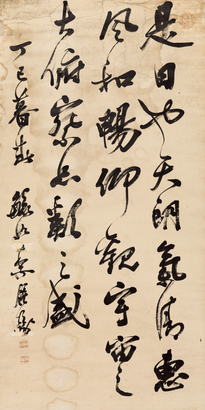 是日也天朗氣清惠
風和暢仰觀宇宙之
大俯察品類之盛
丁巳暮春